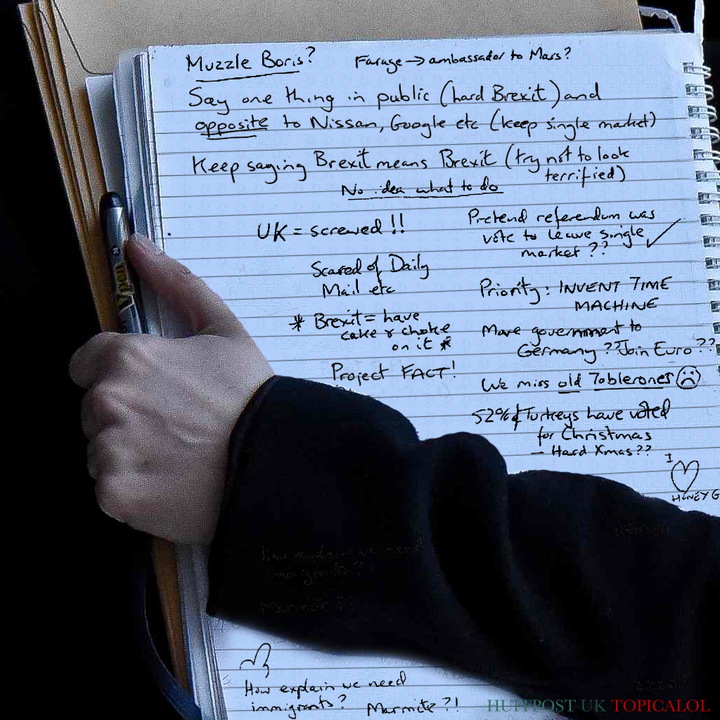 Muzzle Boris?
Farage → ambassador to Mars?
Say one thing in public (hard Brexit) and
opposite to Nissan, Google etc (keep single market)
Keep saying Brexit means Brexit (try not to look
terrified)
No idea what to do
UK = screwed!!
Scared of Daily
Mail etc
* Brexit = have
cake & choke
on it *
Project FACT!
Pretend referendum was
vote to leave single
market?? ✓
Priority: INVENT TIME
MACHINE
Move government to
Germany?? Join Euro??
We miss old Toblerones ☹
52% of Turkeys have voted
for Christmas
– Hard Xmas??
I
♡
HONEY G
How explain we need
immigrants? Marmite?!
Vpen
HUFFPOST UK TOPICALOL